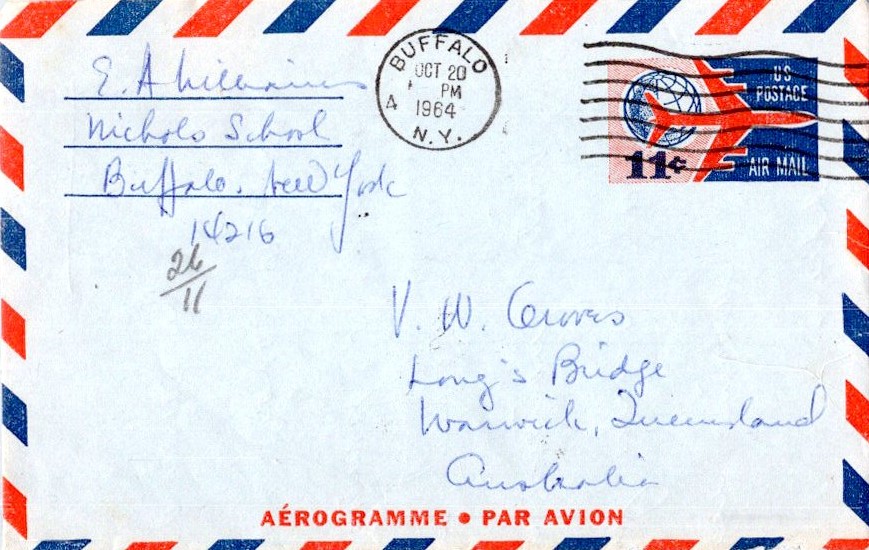 E. A. Williams
Nichols School
Buffalo, New York
14216
26
11
BUFFALO
OCT 20
PM
4
1964
N.Y.
US
POSTAGE
11¢
AIR MAIL
V. W. Groves
Long's Bridge
Warwick, Queensland
Australia
AÉROGRAMME • PAR AVION